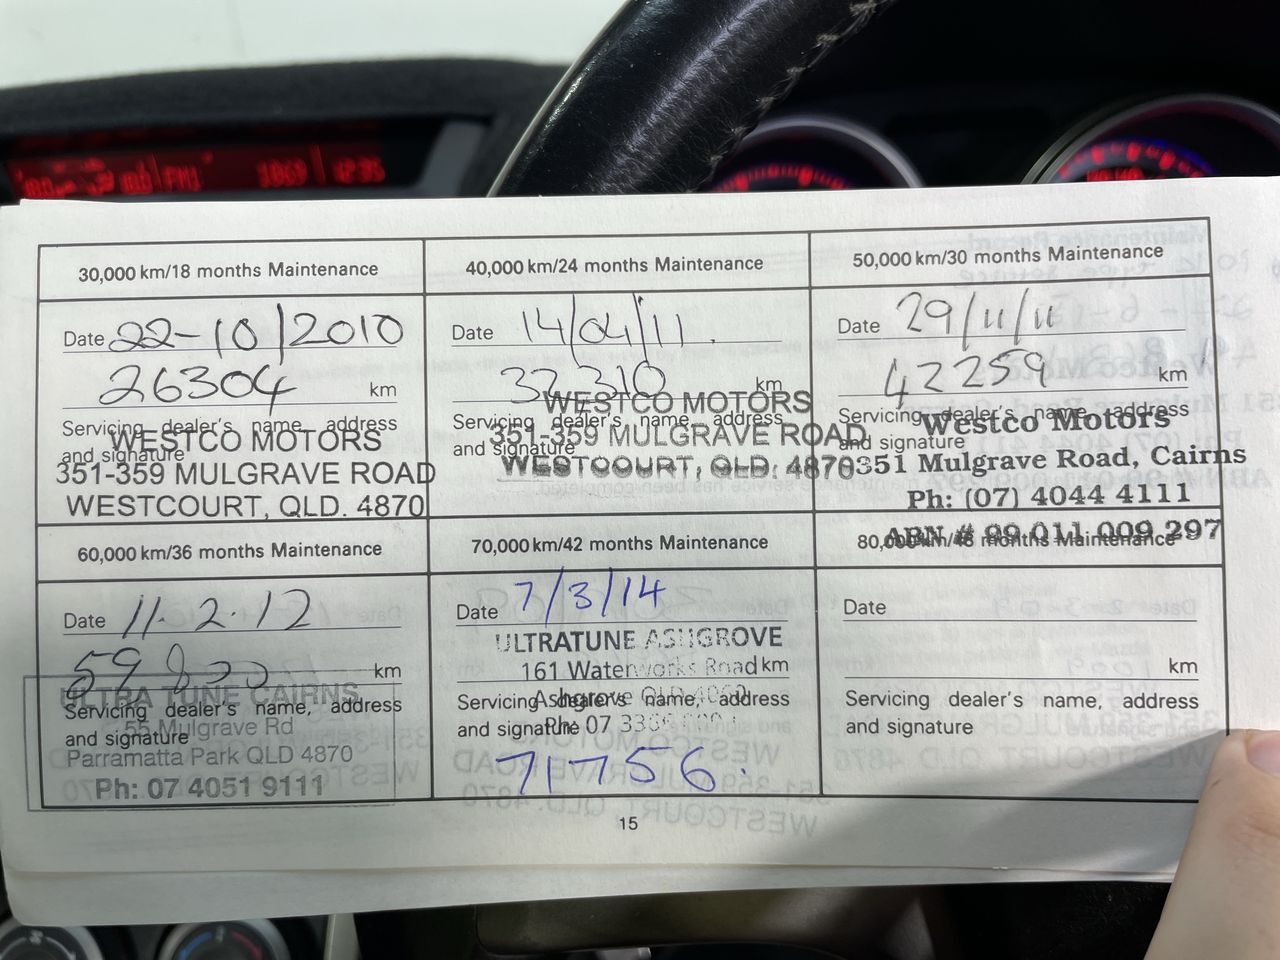 FM1
30,000 km/18 months Maintenance
Date 22-10/2010
26304 km
Servicing dealer's name, address
and signature
WESTCO MOTORS
351-359 MULGRAVE ROAD
WESTCOURT, QLD. 4870
40,000 km/24 months Maintenance
Date 14/04/11.
32310 km
Servicing dealer's name, address
and signature
WESTCO MOTORS
351-359 MULGRAVE ROAD
WESTCOURT, QLD. 4870
50,000 km/30 months Maintenance
Date 29/11/11
42259 km
Servicing dealer's name, address
and signature
Westco Motors
351 Mulgrave Road, Cairns
Ph: (07) 4044 4111
ABN # 99 011 009 297
60,000 km/36 months Maintenance
Date 11.2.12
59800 km
Servicing dealer's name, address
and signature
ULTRA TUNE CAIRNS
Mulgrave Rd
Parramatta Park QLD 4870
Ph: 07 4051 9111
70,000 km/42 months Maintenance
Date 7/3/14
km
ULTRATUNE ASHGROVE
161 Waterworks Road
Ashgrove QLD 4060
Ph: 07
Servicing dealer's name, address
and signature
71756.
80,000 km/48 months Maintenance
Date
km
Servicing dealer's name, address
and signature
15